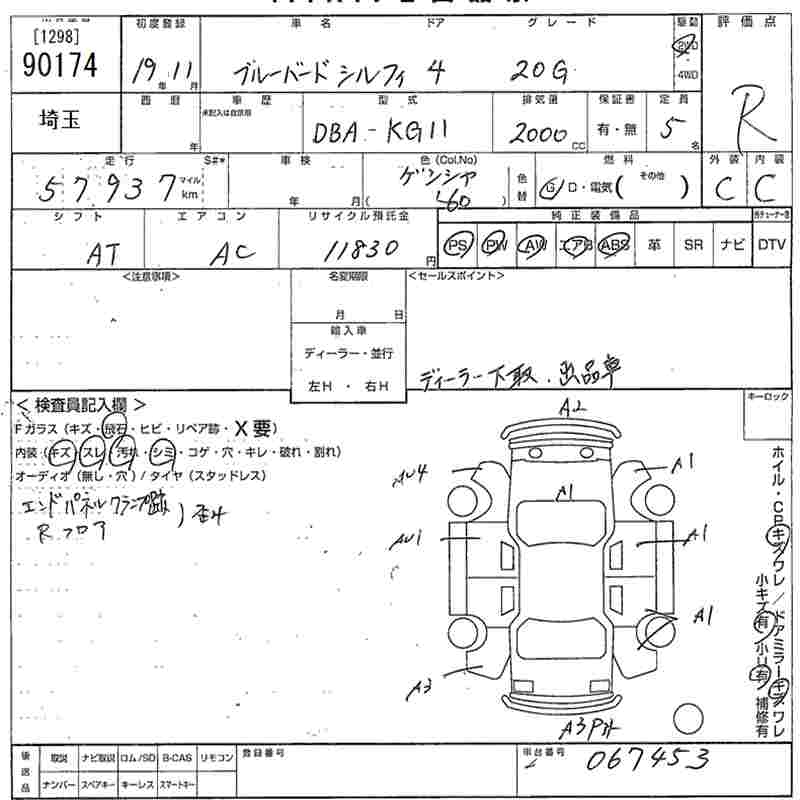 [1298]
90174
埼玉
初度登録
19年11月
車名 ドア グレード
ブルーバード シルフィ 4 20G
駆動
2WD
4WD
評価点
R
西暦
年
車歴
未記入は自家用
型式
DBA-KG11
排気量
2000cc
保証書
有・無
定員
5名
走行
57937
マイル
km
S#*
車検
年 月(
色(Col.No)
ゲンシャ
L60
)
色替
燃料
G D・電気( その他 )
外装
C
内装
C
シフト
AT
エアコン
AC
リサイクル預託金
11830円
純正装備品
PS PW AW エアB ABS 革 SR ナビ DTV
<注意事項>
名変期限
月 日
輸入車
ディーラー・並行
左H・右H
<セールスポイント>
ディーラー下取・出品車
＜検査員記入欄＞
Fガラス(キズ・飛石・ヒビ・リペア跡・X要)
内装(キズ・スレ・汚れ・シミ・コゲ・穴・キレ・破れ・割れ)
オーディオ(無し・穴)/タイヤ(スタッドレス)
エンドパネルクランプ跡
Rフロア
キーロック
A2
A1
A1
A1
A1
A3
ホイル・CPキズワレ/ドアミラーキズワレ
小キズ有/小凹有/補修有
後送品
取説 ナビ取説 ロム/SD B-CAS リモコン
ナンバー スペアキー キーレス スマートキー
登録番号
車台番号
067453